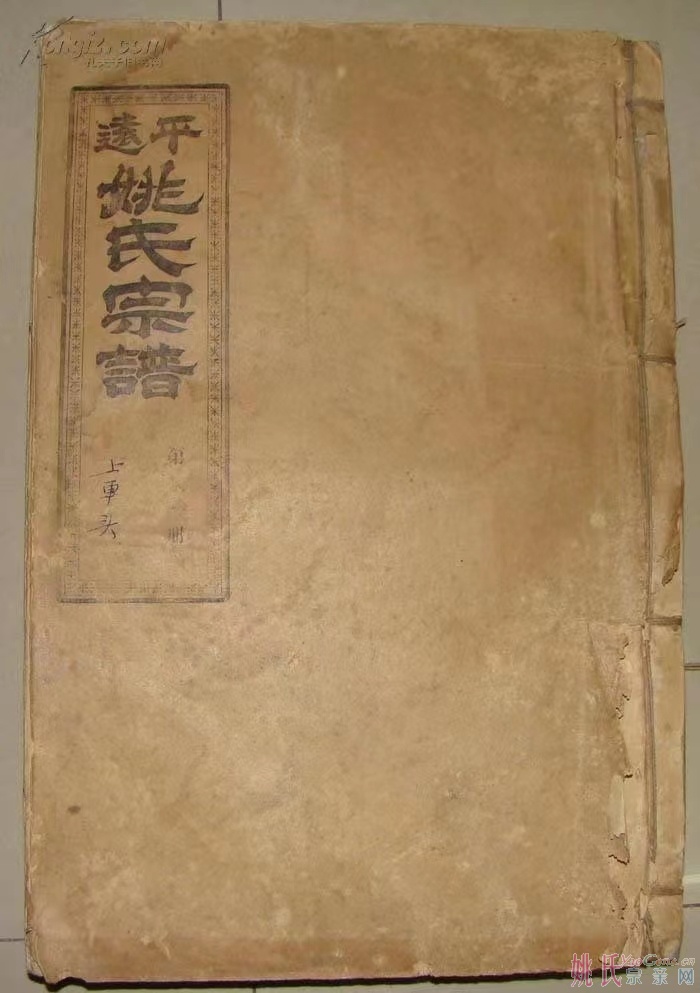 平遠
姚氏宗譜
第 册
上車头
Kongfz.com
孔夫子旧书网
姚氏宗亲网
YaoGens.cn